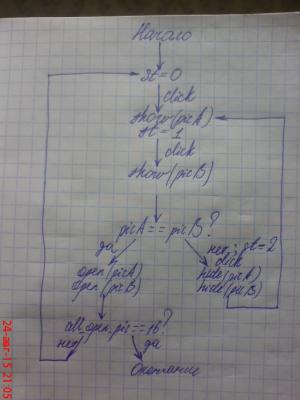 Начало
st=0
click
show(picA)
st=1
click
show(picB)
picA==picB?
да
нет; st=2
click
open(picA)
open(picB)
hide(picA)
hide(picB)
all_open_pic==16?
нет
да
Окончание
24-авг-15 21:05